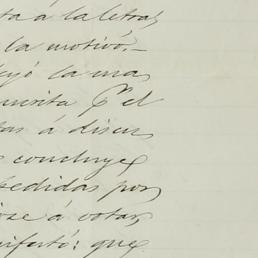 ta á la letra,
la motivó.—
la ma
el
tas á discu
concluye
pedidas por
ose á votar,
nifestó: que